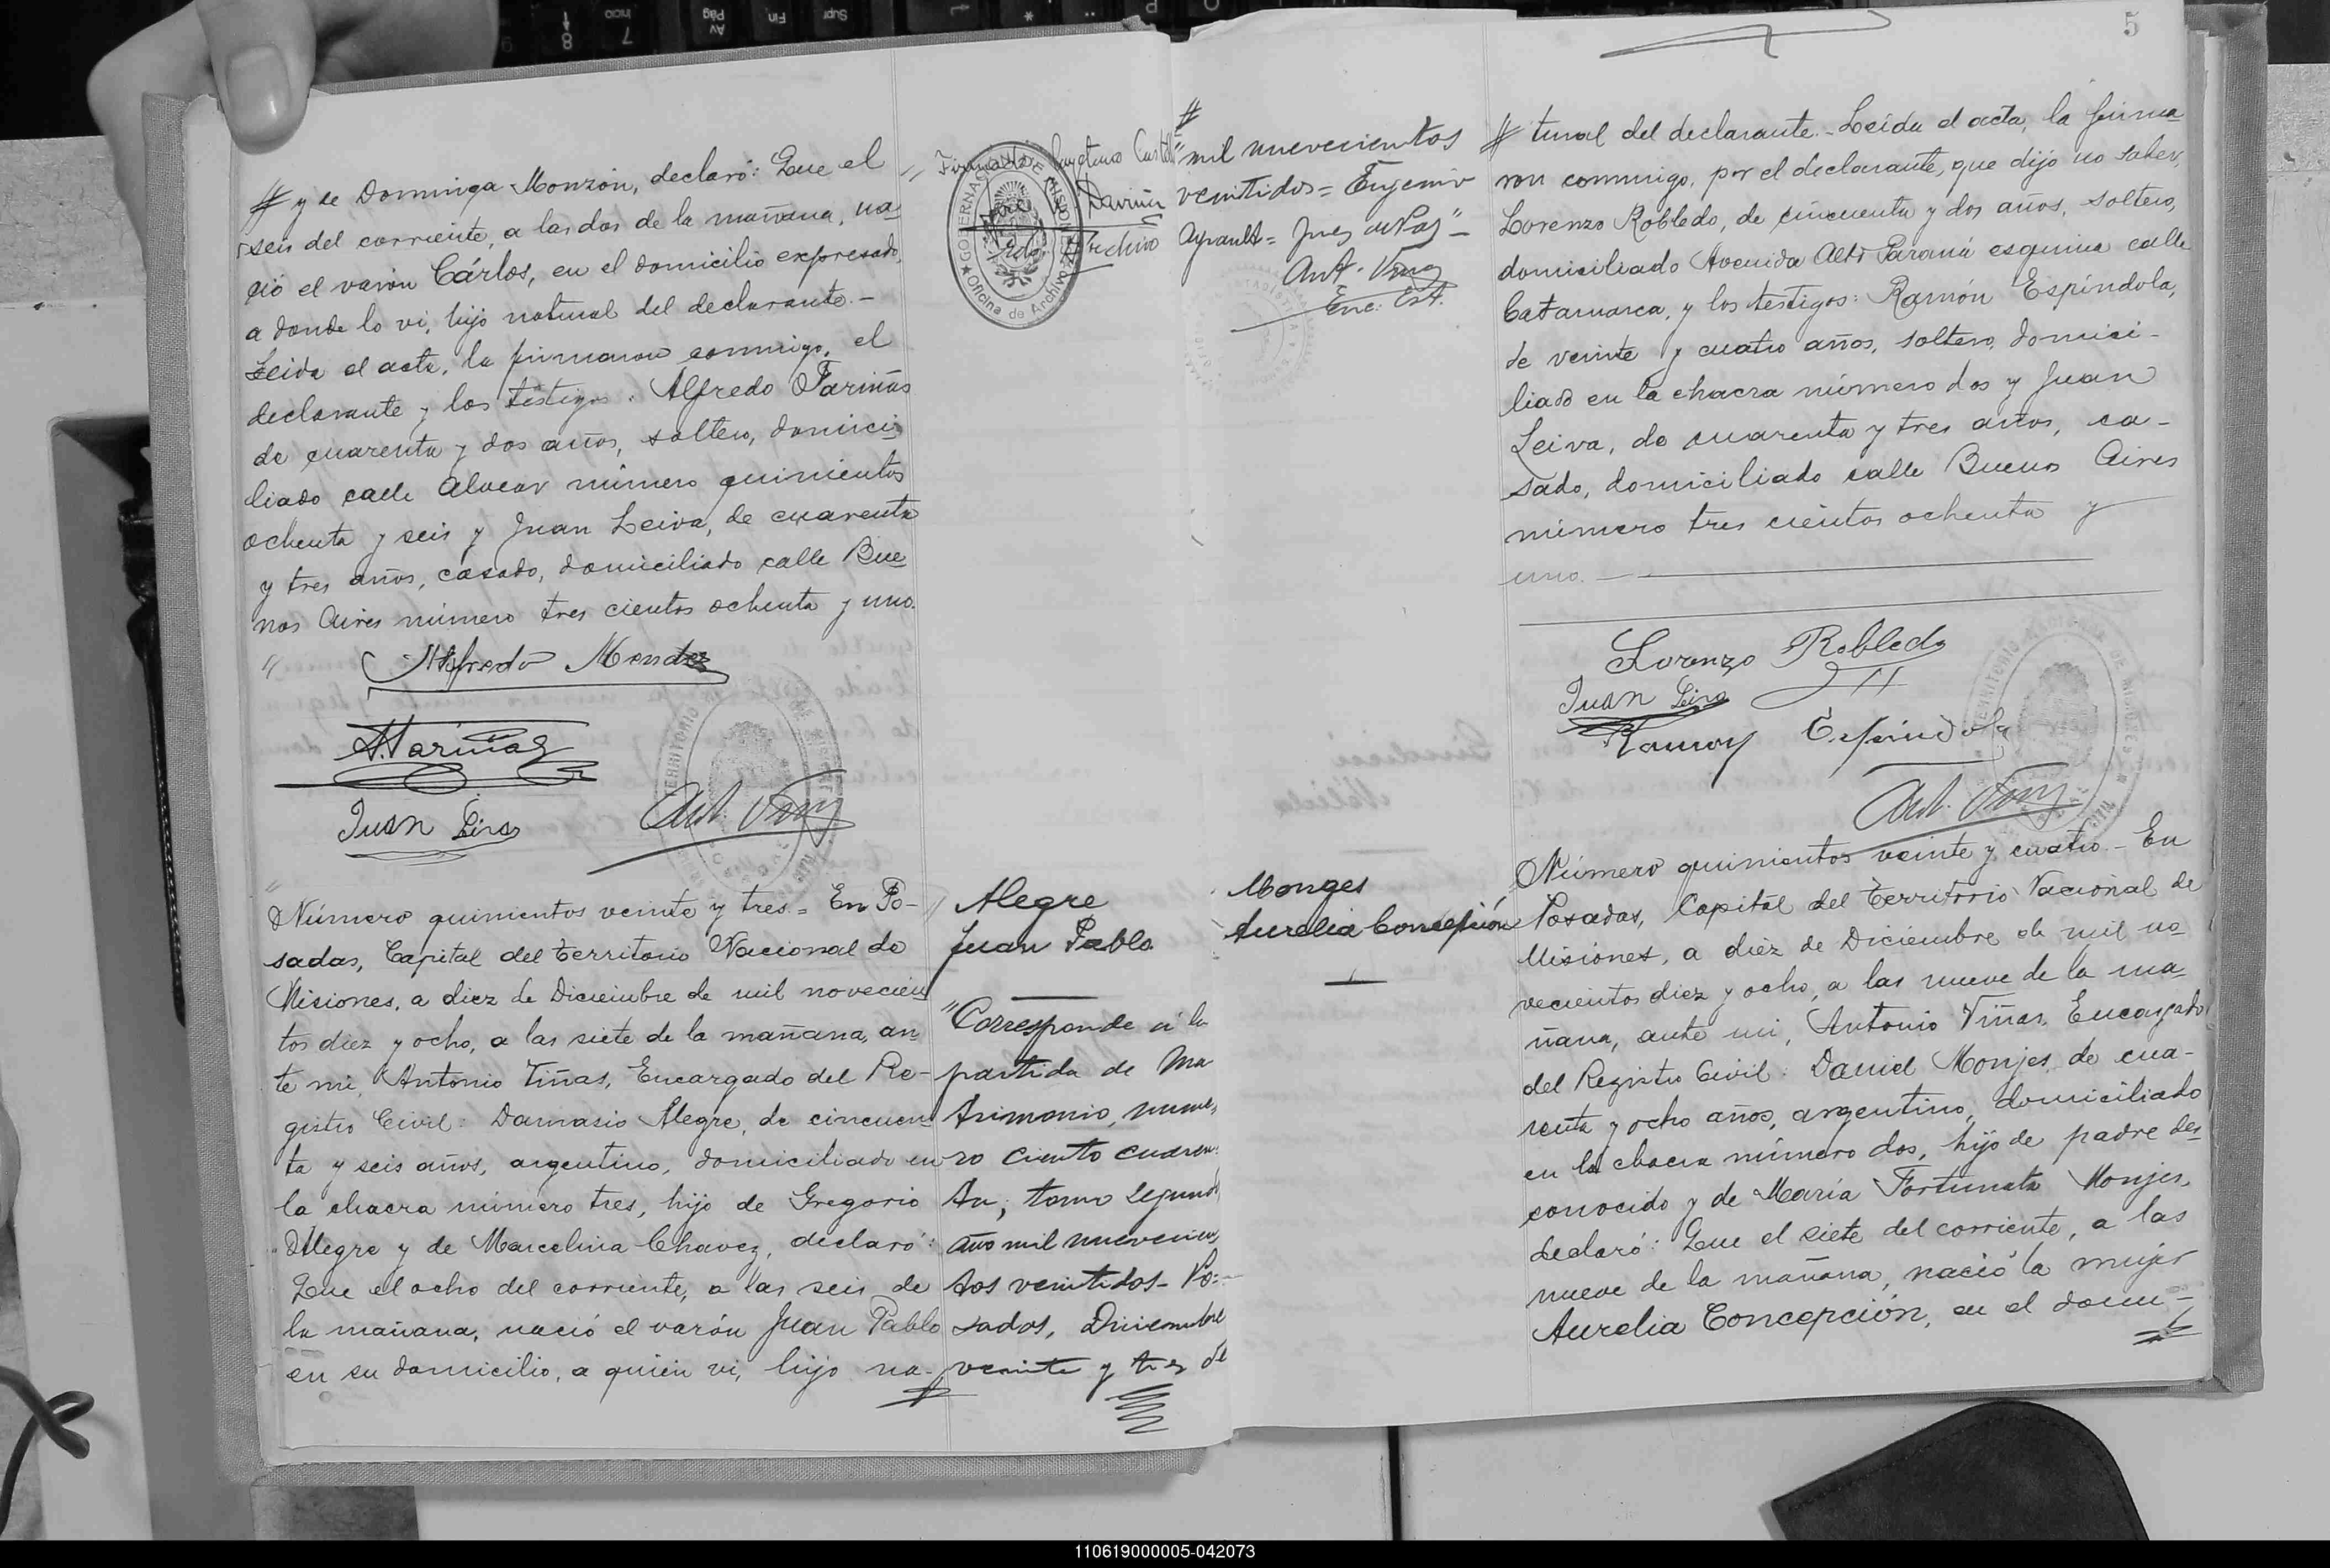 # y de Dominga Monzón, declaró: Que el
seis del corriente, a las dos de la mañana, na-
ció el varón Cárlos, en el domicilio expresado,
a donde lo vi, hijo natural del declarante.-
Leida el acta, la firmaron conmigo, el
declarante y los testigos: Alfredo Fariñas
de cuarenta y dos años, soltero, domici-
liado calle Alvear número quinientos
ochenta y seis y Juan Leiva, de cuarenta
y tres años, casado, domiciliado calle Bue
nos Aires número tres cientos ochenta y uno.
Alfredo Mendez
A. Fariñas
Juan Leiva
Ant. Viñas
Número quinientos veinte y tres = En Po-
sadas, Capital del territorio Nacional de
Misiones, a diez de Diciembre de mil novecien
tos diez y ocho, a las siete de la mañana, an
te mi, Antonio Viñas, Encargado del Re-
gistro Civil: Damasio Alegre, de cincuen
ta y seis años, argentino, domiciliado en
la chacra número tres, hijo de Gregorio
Alegre y de Marcelina Chavez, declaró:
Que el ocho del corriente, a las seis de
la mañana, nació el varón Juan Pablo
en su domicilio, a quien vi, hijo na-
#
Firmado
GOBERNACION DE MISIONES
Oficina de Archivo
Archivo
Alegre
Juan Pablo
"Corresponde á la
partida de Ma
trimonio, núme-
ro ciento cuaren-
ta, tomo segundo
año mil nuevecien
tos veintidos- Po-
sadas, Diciembre
veinte y tres de
#
mil nuevecientos
veintidos = Eugenio
Ayrault = Juez de Paz"-
Ant. Viñas
Enc. Est.
Monges
Aurelia Concepción
5
# tural del declarante.- Leída el acta, la firma
ron conmigo, por el declarante, que dijo no saber,
Lorenzo Robledo, de cincuenta y dos años, soltero,
domiciliado Avenida Alto Paraná esquina calle
Catamarca, y los testigos: Ramón Espíndola,
de veinte y cuatro años, soltero, domici-
liado en la chacra número dos y Juan
Leiva, de cuarenta y tres años, ca-
sado, domiciliado calle Buenos Aires
número tres cientos ochenta y
uno.
Lorenzo Robledo
Juan Leiva
Ramon Espindola
Ant. Viñas
Número quinientos veinte y cuatro.- En
Posadas, Capital del territorio Nacional de
Misiones, a diez de Diciembre de mil no-
vecientos diez y ocho, a las nueve de la ma-
ñana, ante mi, Antonio Viñas, Encargado
del Registro Civil: Daniel Monjes, de cua-
renta y ocho años, argentino, domiciliado
en la chacra número dos, hijo de padre des
conocido y de María Fortunata Monjes,
declaró: Que el siete del corriente, a las
nueve de la mañana, nació la mujer
Aurelia Concepción, en el domi-
#
110619000005-042073